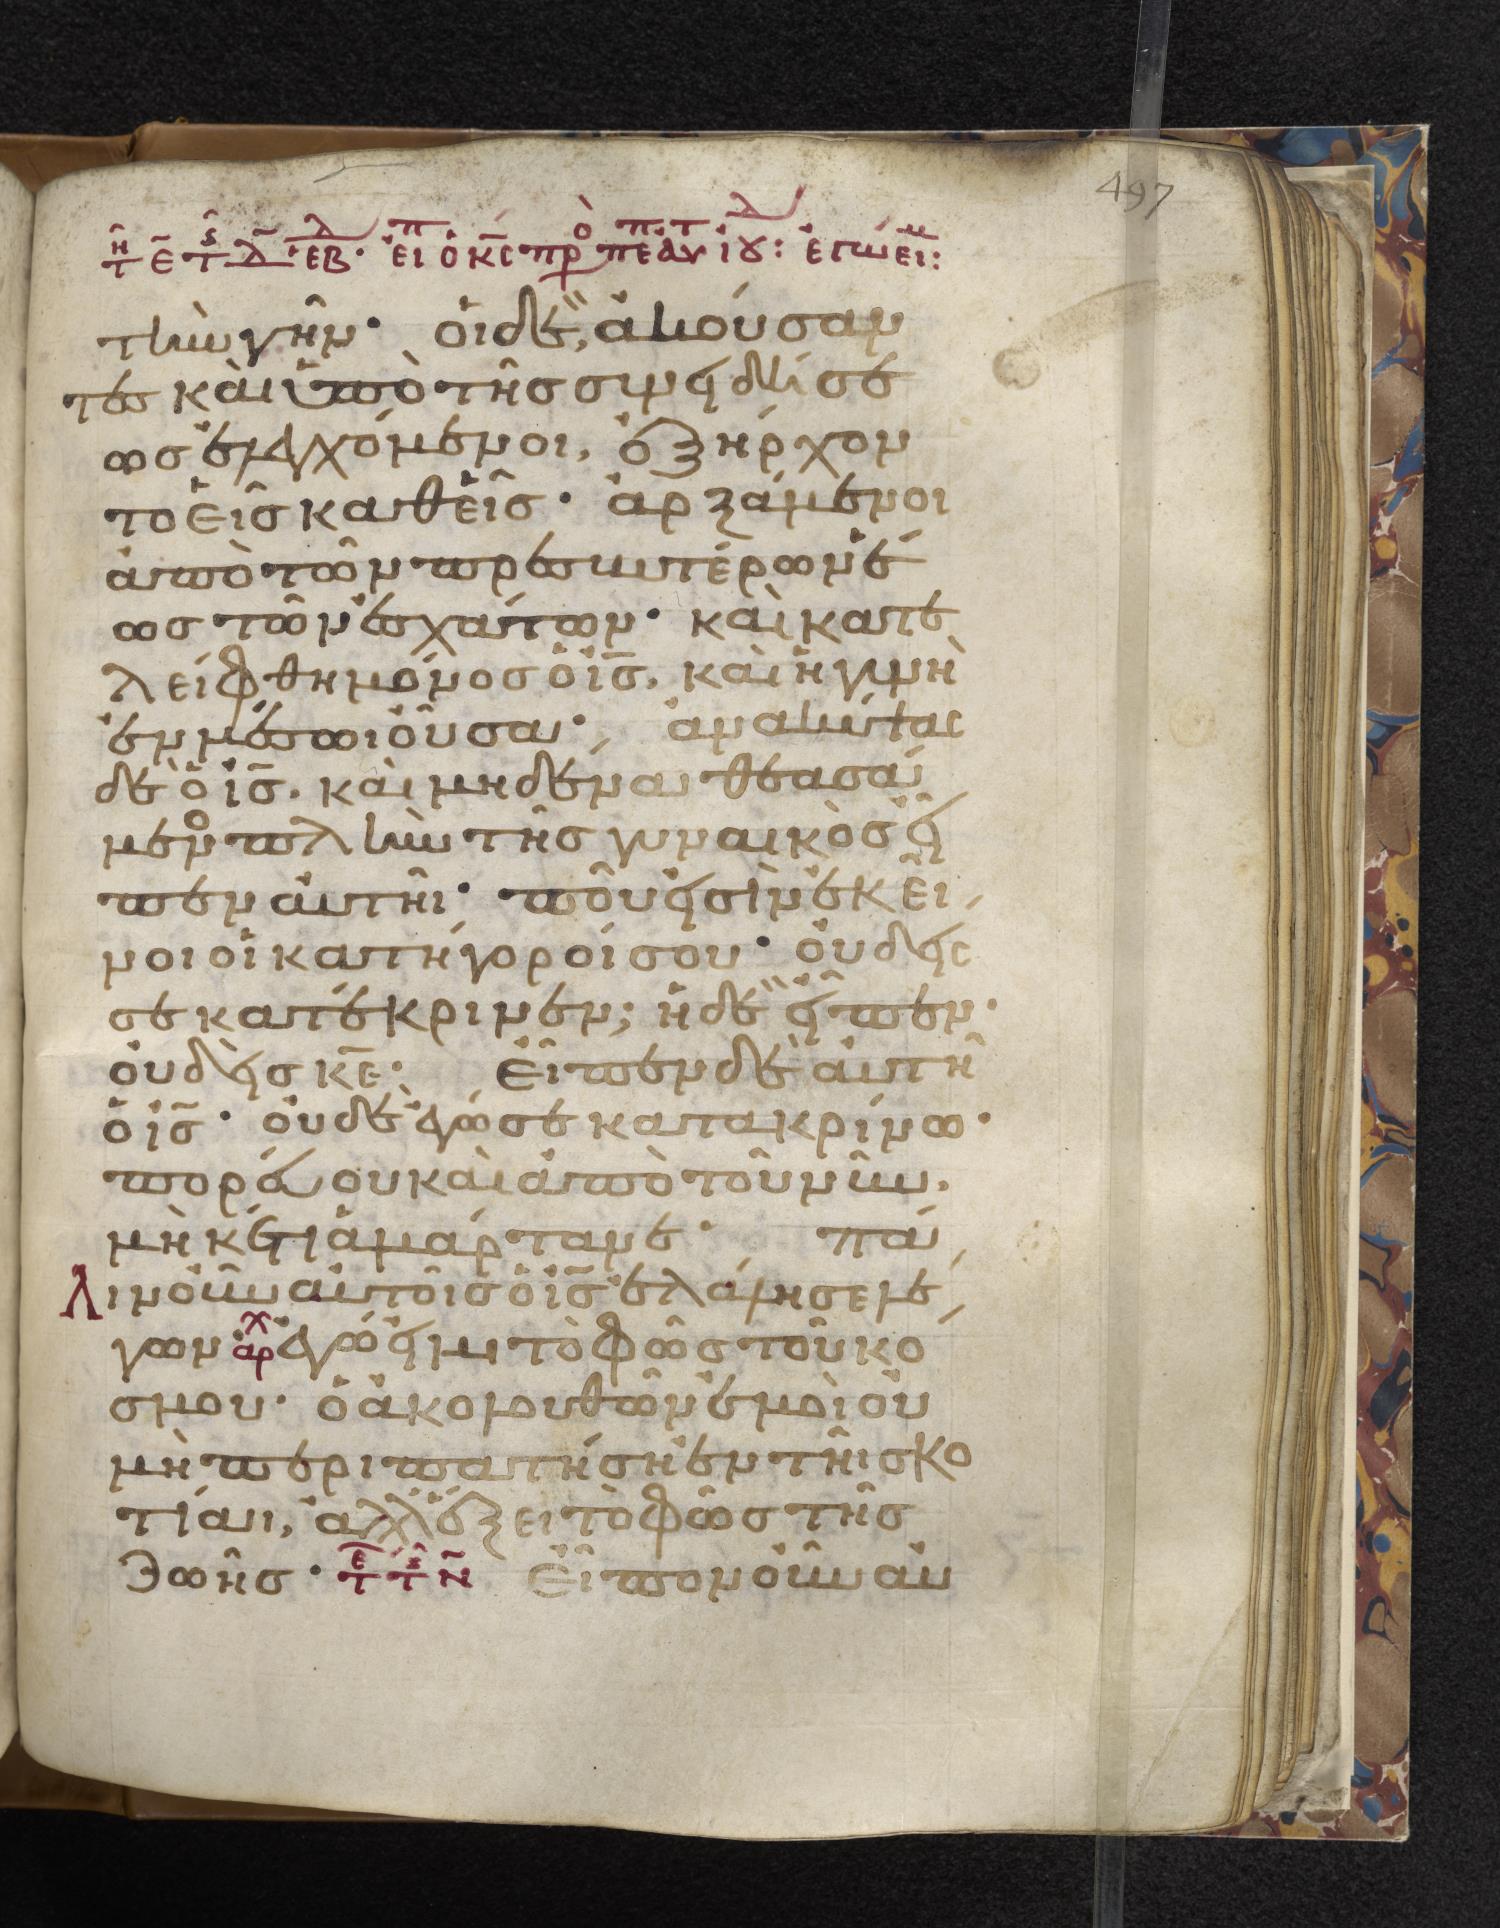 497
τὴν γῆν· οἱ δὲ, ἀκούσαν
τες καὶ ὑπὸ τῆς συνειδήσε
ως ἐλεγχόμενοι, ἐξήρχον
το εἷς καθεῖς· ἀρξάμενοι
ἀπὸ τῶν πρεσβυτέρων ἕ
ως τῶν ἐσχάτων· καὶ κατε
λείφθη μόνος ὁ ις̄. καὶ ἡ γυνὴ
ἐν μέσωι οὖσα· ἀνακύψας
δὲ ὁ ις̄. καὶ μηδένα θεασά
μενο πλὴν τῆς γυναικὸς εἶ
πεν αὐτῆι· ποῦ εἰσὶν ἐκεῖ
νοι οἱ κατήγοροί σου· οὐδείς
σε κατέκρινεν; ἡ δὲ εἶπεν·
οὐδεὶς κε̄· εἶπεν δὲ αὐτῆ
ὁ ις̄· οὐδὲ ἐγώ σε κατακρίνω·
πορεύου καὶ ἀπὸ τοῦ νῦν,
μηκέτι ἁμάρτανε· πά
λιν οὖν αὐτοῖς ὁ ις̄ ἐλάλησε λέ
γων ἀρχ ἐγώ εἰμι τὸ φῶς τοῦ κό
σμου· ὁ ἀκολουθῶν ἐμοὶ οὐ
μὴ περιπατήση ἐν τῆι σκο
τίαι, ἀλλ' ἕξει τὸ φῶς τῆς
ζωῆς· εἶπον οὖν αὐ